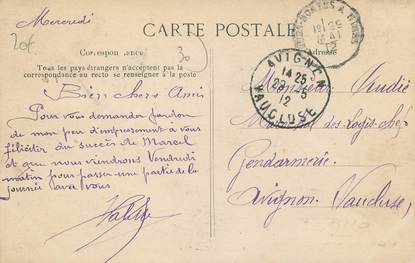 Mercredi
20f
CARTE POSTALE
30
Correspondance
Adresse
Tous les pays étrangers n'acceptent pas la
correspondance au recto se renseigner à la poste
AVIGNON
14 25
29 - 5
12
VAUCLUSE
Bien chers Amis
Pour vous demander pardon
de mon peu d'empressement a vous
féliciter du succès de Marcel
et que nous viendrons Vendredi
matin pour passer une partie de la
journée avec vous
Monsieur
Maréchal des logis chef
Gendarmerie.
Avignon Vaucluse,